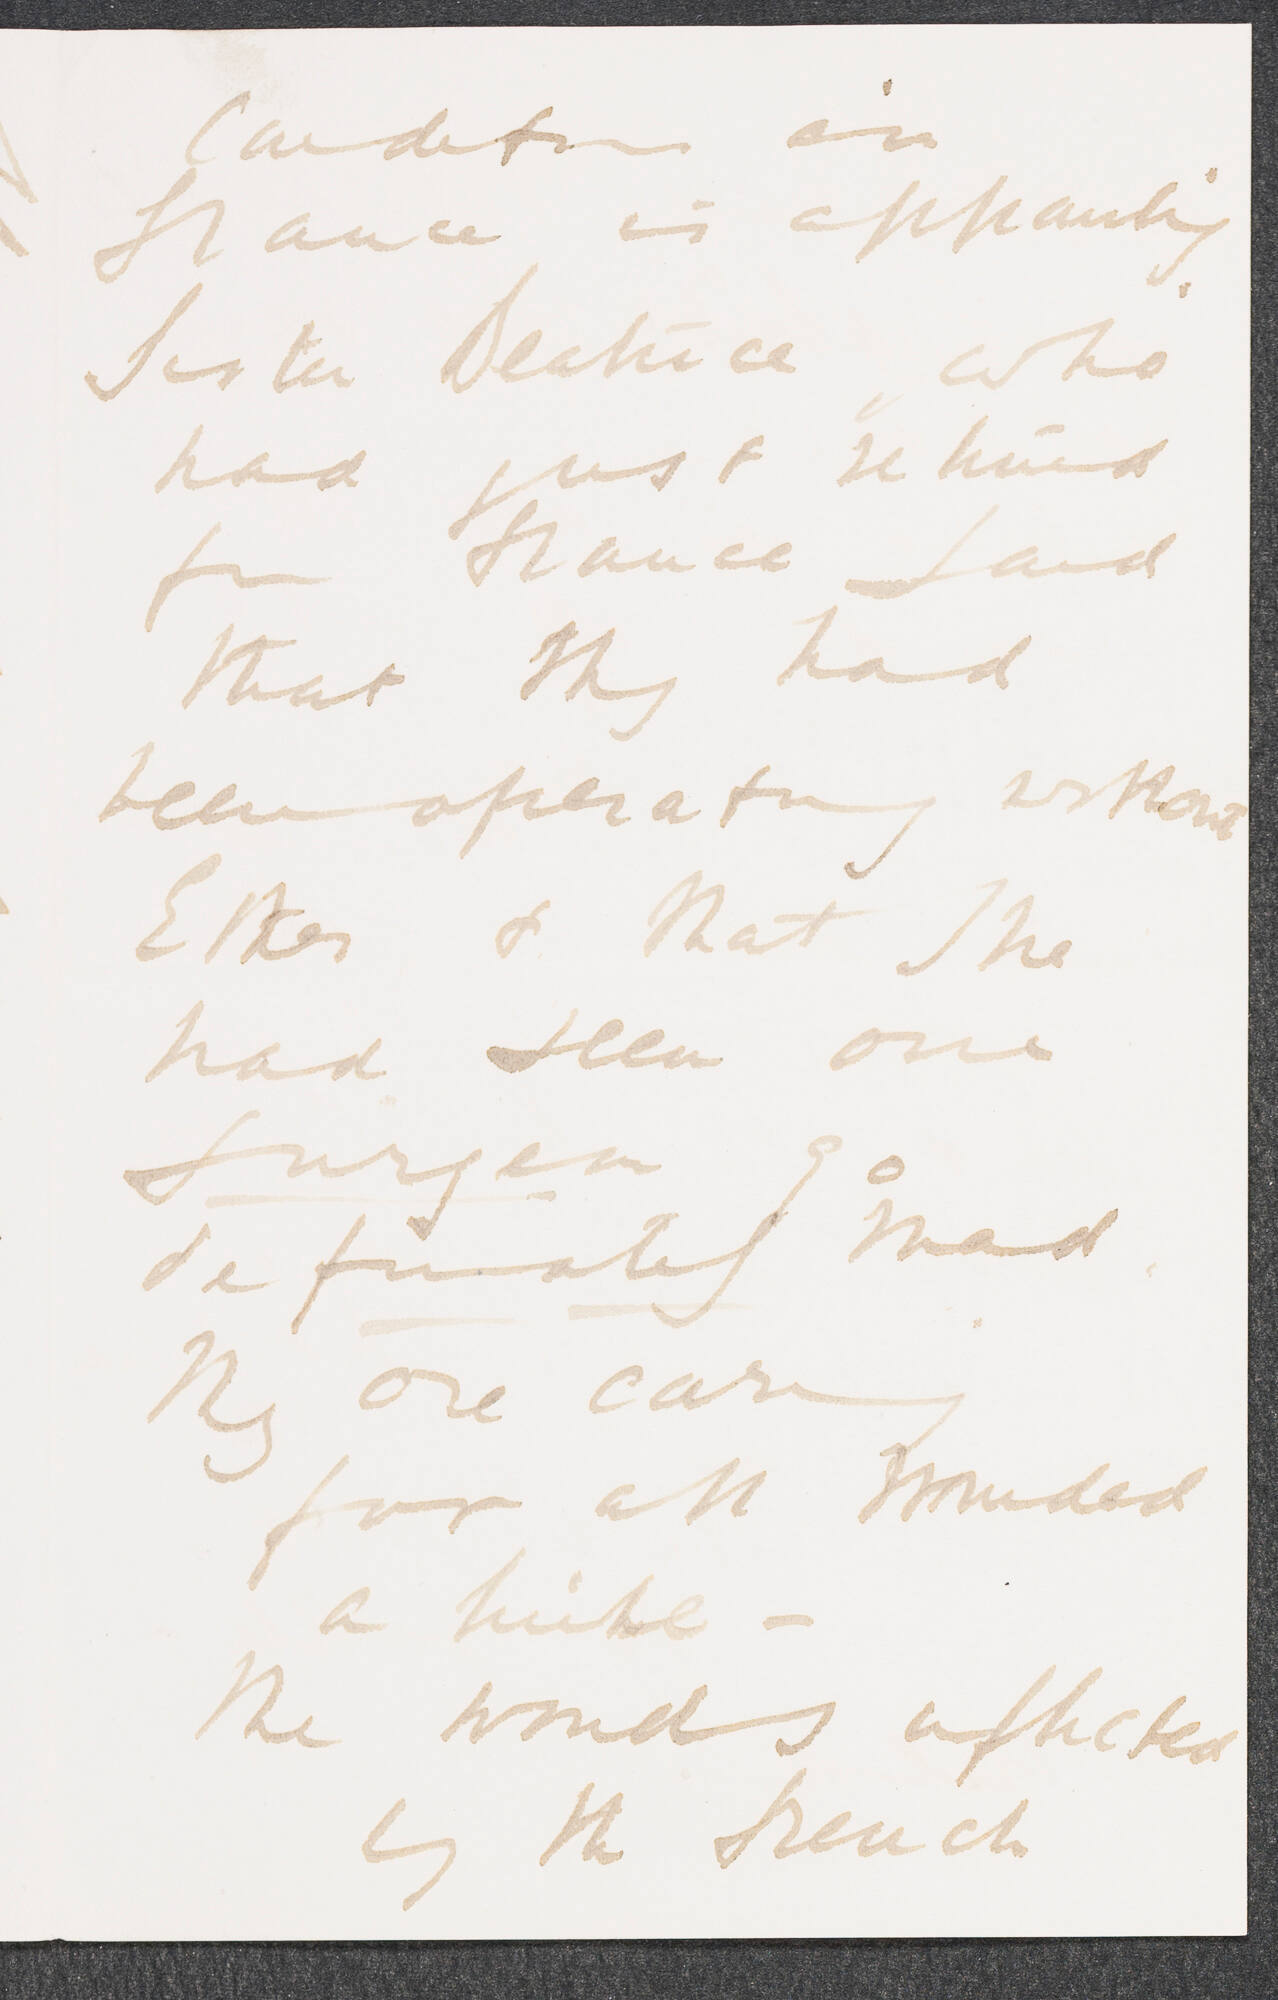 Condition in
France is appauling
Sister Beatrice, who
had just returned
fm France said
that they had
been operating without
Ether & that she
had seen one
surgeon go
definately mad.
They are caring
for all wounded
a like -
The wounds inflicted
by the French